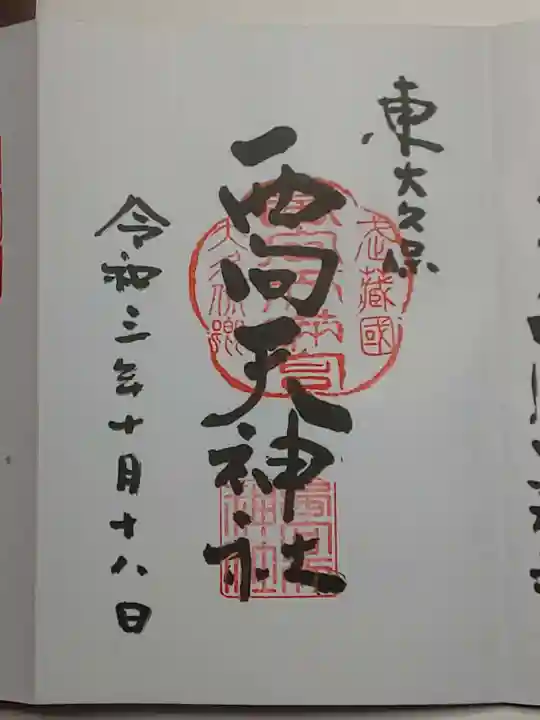 東大久保
西向天神社
令和三年十月十八日
武藏國
大久保鄕